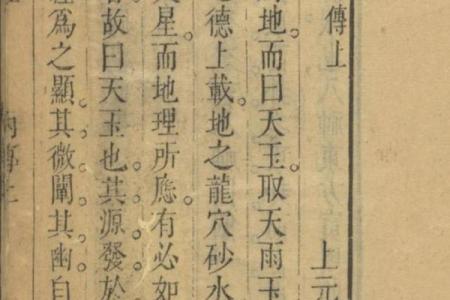 傳上
上元
地而曰天玉取天雨玉
德上載地之龍穴砂水
星而地理所應有必如
故曰天玉也其源發於
爲之顯其微闡其幽自
内傳上